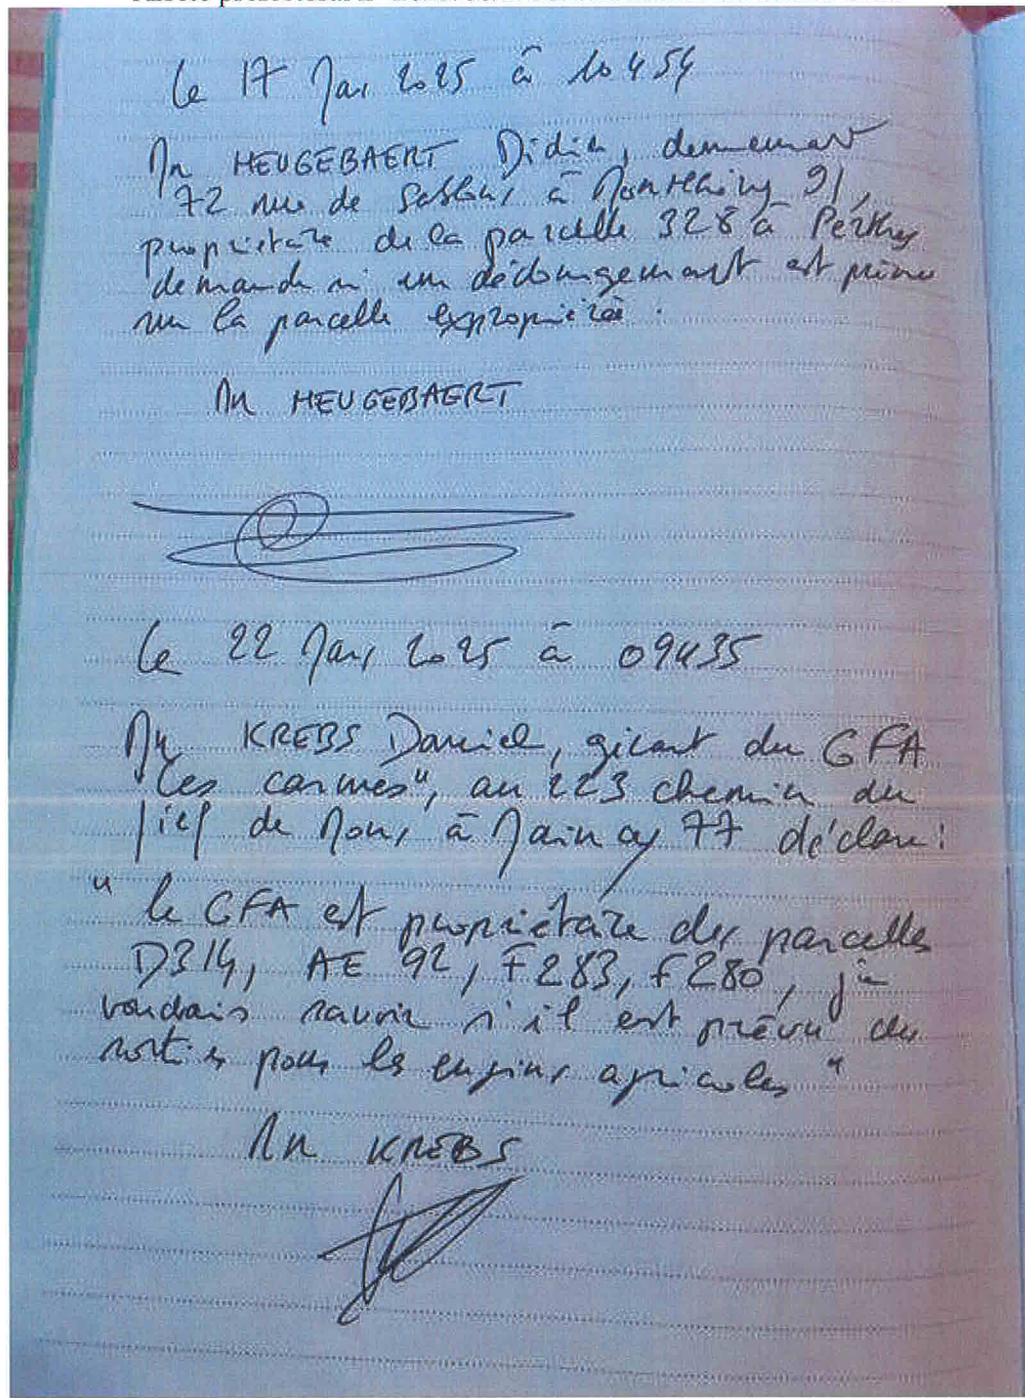 Le 17 Mai 2025 à 10h54
Mr HEUGEBAERT Didier, demeurant
72 rue de Sablons à Montlhéry 91,
propriétaire de la parcelle 328 à Perthes
demande si un dédommagement est prévu
sur la parcelle expropriée.
Mr HEUGEBAERT
Le 22 Mai 2025 à 09h35
Mr KREBS Daniel, gérant du GFA
"les carmes", au 223 chemin du
fief de Mons à Maincy 77 déclare:
"le GFA est propriétaire des parcelles
D314, AE 92, F283, F280, je
voudrais savoir s'il est prévu des
sorties pour les engins agricoles"
Mr KREBS